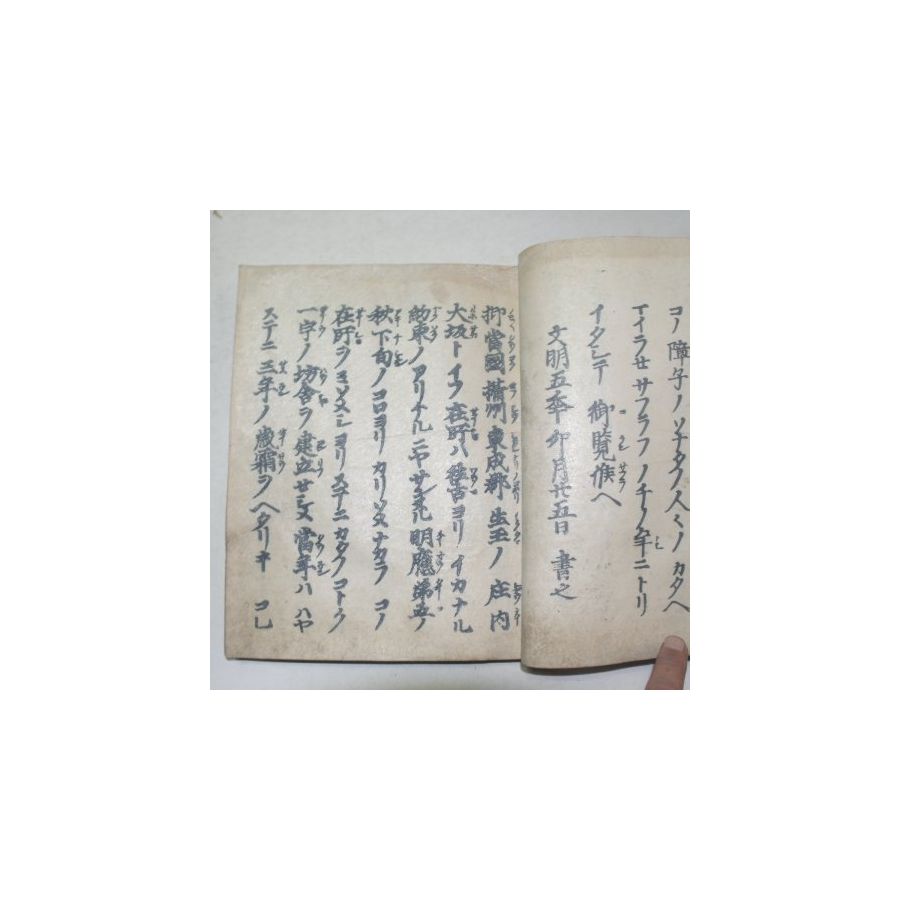 コノ障子ノソナタノ人〻ノ カタヘ
マイラセサフラフノチノ年ニトリ
イタシテ 御覧候ヘ
文明五年 卯月廿五日 書之
抑當國攝州東成郡生玉ノ庄内
大坂トイフ在所ハ往古ヨリイカナル
約束ノアリケルニヤサンヌル明應第五ノ
秋下旬ノコロヨリカリソメナカラコノ
在所ヲミソメシヨリステニカタノコトク
一宇ノ坊舎ヲ建立セシメ當年ハハヤ
ステニ三年ノ歳霜ヲヘタリキ コレ